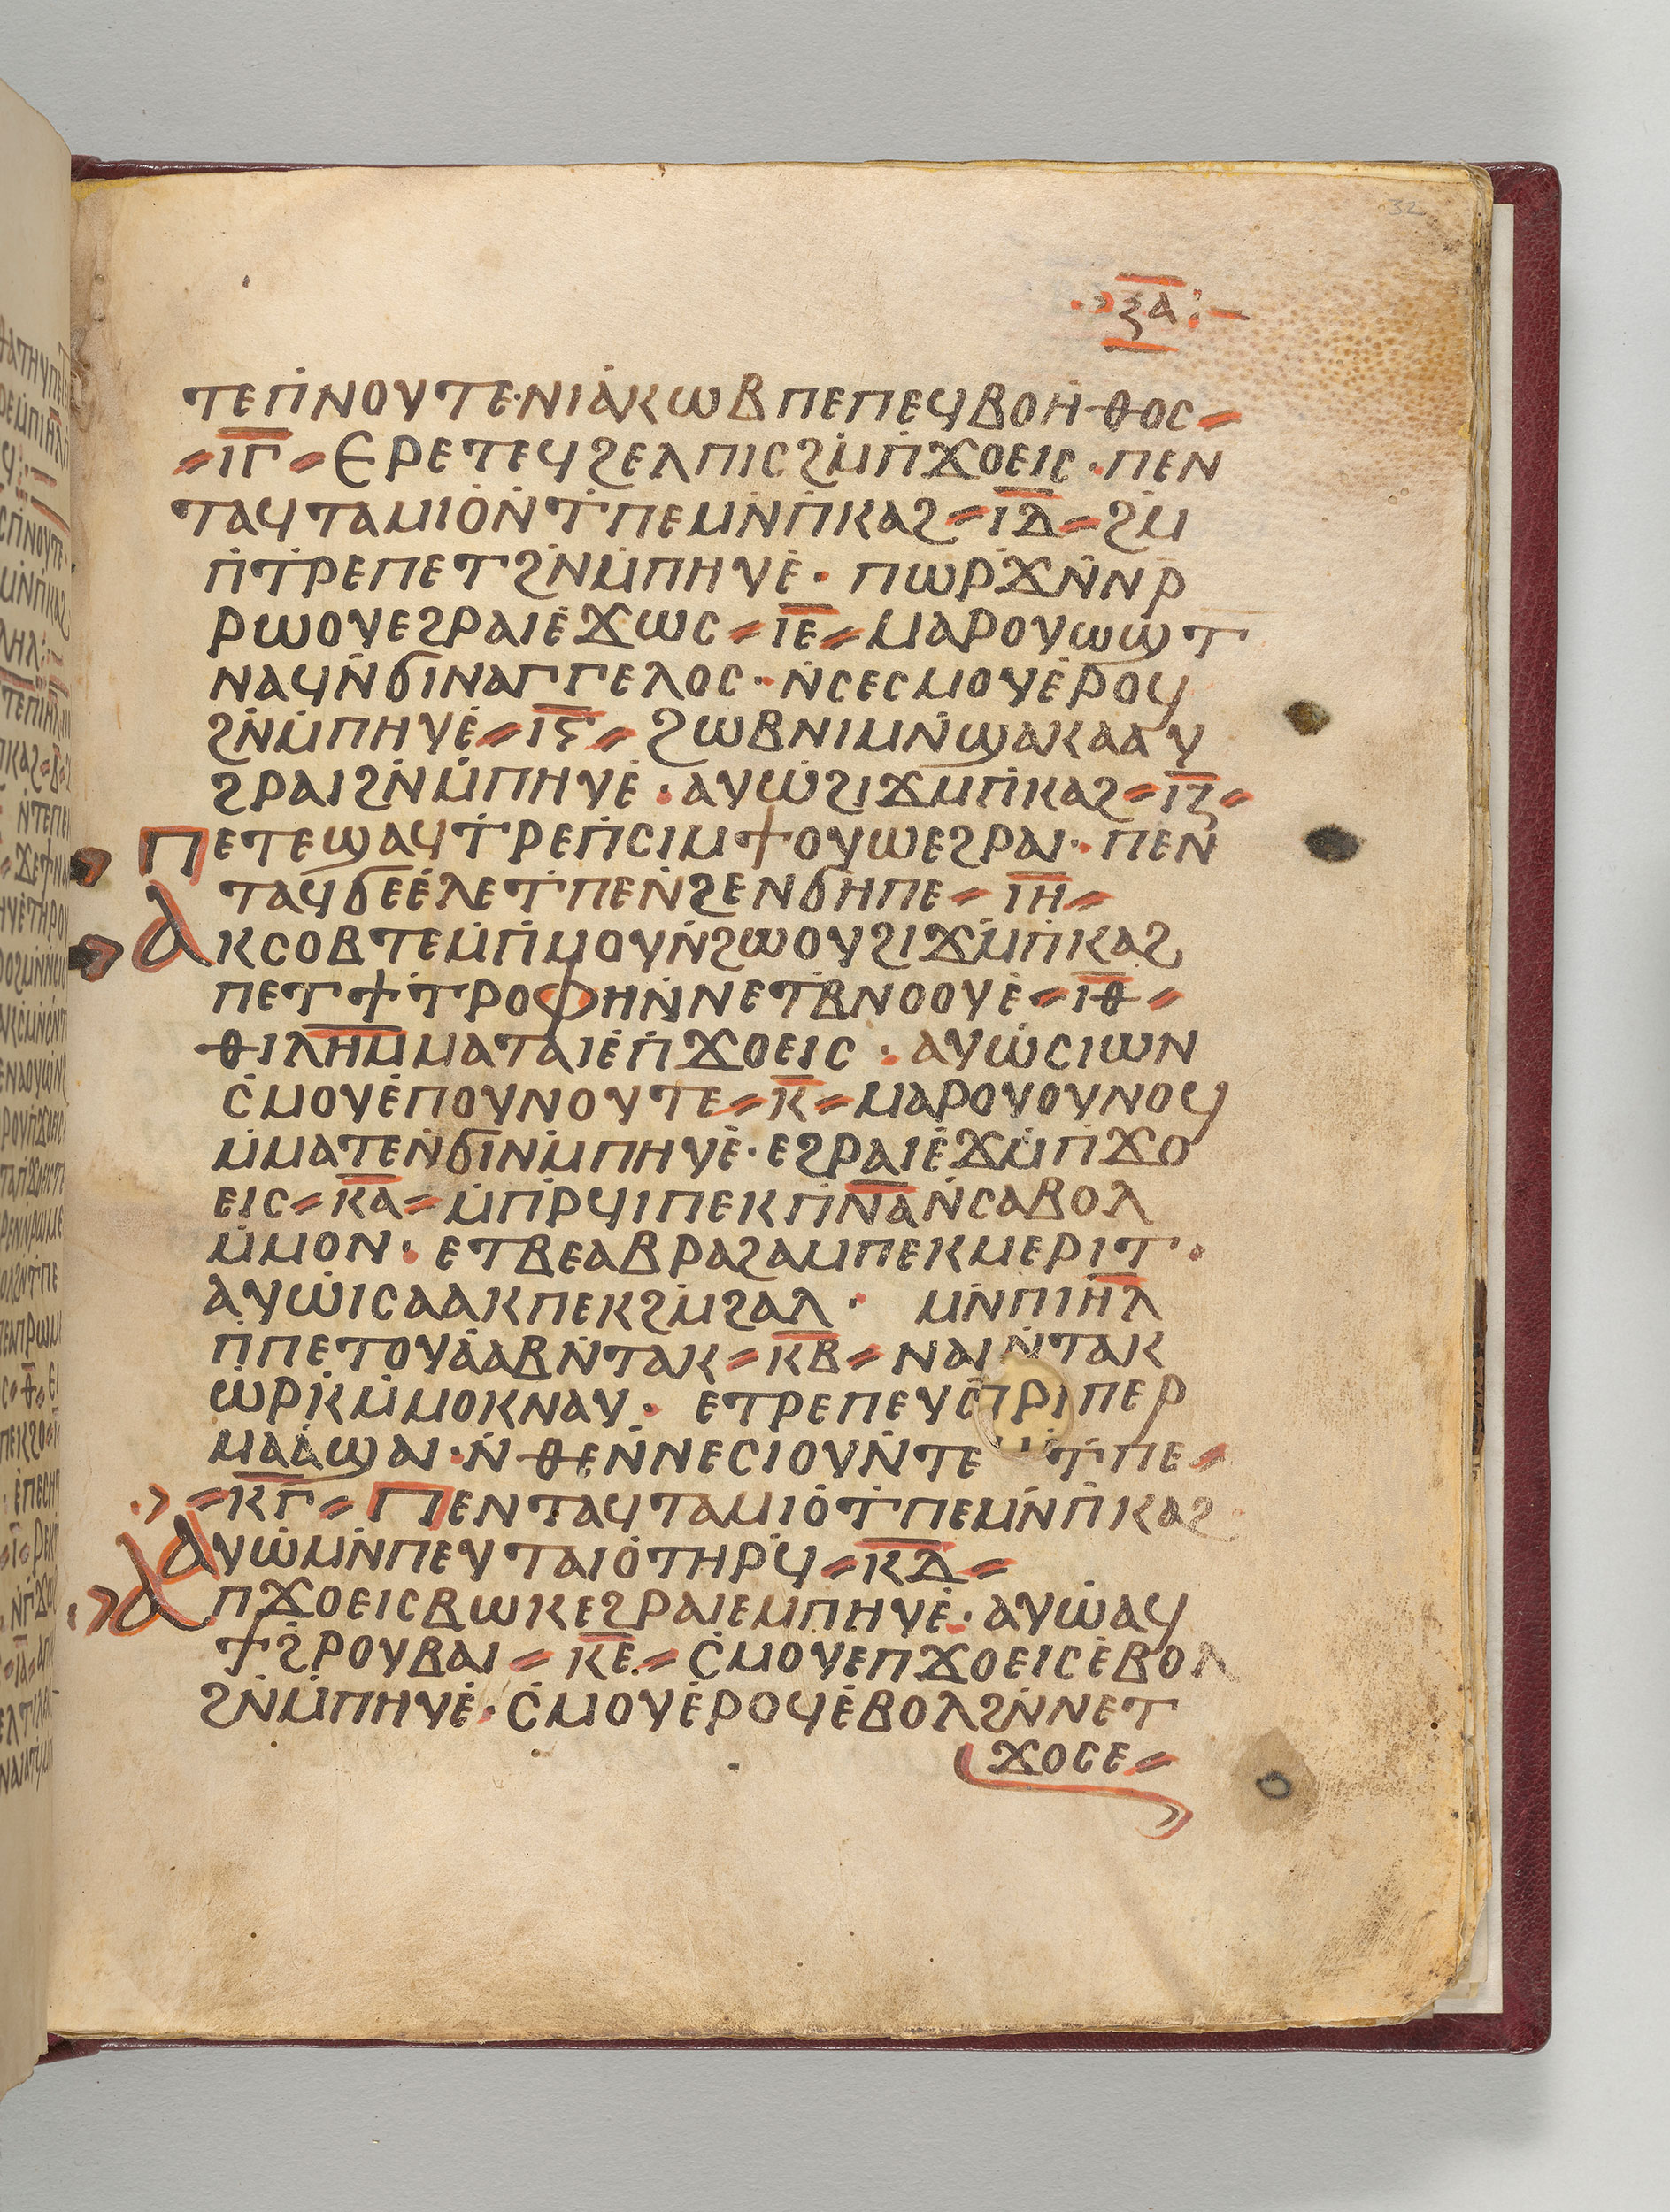 32
ⲝⲁ
ⲧⲉⲡ̇ⲛⲟⲩⲧⲉ·ⲛⲓⲁ̇ⲕⲱⲃⲡⲉⲡⲉϥⲃⲟⲏ̇ⲑⲟⲥ⸗
⸗ⲓ̅ⲅ̅⸗ⲉⲣⲉⲧⲉϥϩⲉⲗⲡⲓⲥϩⲙ̇ⲡ̇ϫⲟⲉⲓⲥ·ⲡⲉⲛ
ⲧⲁϥⲧⲁⲙⲓⲟ̇ⲛ̇ⲧ̇ⲡⲉⲙⲛ̇ⲡ̇ⲕⲁϩ⸗ⲓ̅ⲇ̅⸗ϩⲙ̇
ⲡ̇ⲧ̇ⲣⲉⲡⲉⲧϩⲛ̇ⲙ̇ⲡⲏⲩⲉ̇· ⲡⲱⲣϫ̇ⲛ̇ⲛⲣ̇
ⲣⲱⲟⲩⲉϩⲣⲁⲓⲉ̇ϫⲱⲥ⸗ⲓ̅ⲉ̅⸗ⲙⲁⲣⲟⲩⲱϣⲧ
ⲛⲁϥⲛ̇ϭⲓⲛⲁⲅⲅⲉⲗⲟⲥ·ⲛ̇ⲥⲉⲥⲙⲟⲩⲉ̇ⲣⲟϥ
ϩⲛ̇ⲙ̇ⲡⲏⲩⲉ̇⸗ⲓ̅ⲋ̅⸗ϩⲱⲃⲛⲓⲙⲛ̇ϣⲁⲕⲁⲁⲩ
ϩⲣⲁⲓϩⲛ̇ⲙ̇ⲡⲏⲩⲉ̇·ⲁⲩⲱ̇ϩⲓϫⲙⲡ̇ⲕⲁϩ⸗ⲓ̅ⲍ̅⸗
ⲡⲉⲧⲉϣⲁϥⲧ̇ⲣⲉⲡ̇ⲥⲓⲙϯⲟⲩⲱⲉϩⲣⲁⲓ·ⲡⲉⲛ
ⲧⲁϥϭⲉⲉ̇ⲗⲉⲧ̇ⲡⲉⲛ̇ϩⲉⲛϭⲏⲡⲉ⸗ⲓ̅ⲏ̅⸗
ⲁⲕⲥⲟⲃⲧⲉⲙ̇ⲡ̇ⲙⲟⲩⲛ̇ϩⲱⲟⲩϩⲓϫⲙ̇ⲡ̇ⲕⲁϩ
ⲡⲉⲧϯⲧⲣⲟⲫⲏⲛ̇ⲛⲉⲧⲃ̇ⲛⲟⲟⲩⲉ̇⸗ⲓ̅ⲑ̅⸗
ⲑⲓⲗ̅ⲏ̅ⲙ̅ⲙⲁⲧⲁⲓⲉ̇ⲡ̇ϫⲟⲉⲓⲥ·ⲁⲩⲱ̇ⲥⲓⲱⲛ
ⲥ̇ⲙⲟⲩⲉ̇ⲡⲟⲩⲛⲟⲩⲧⲉ⸗ⲕ̅⸗ⲙⲁⲣⲟⲩⲟⲩⲛⲟϥ
ⲙ̇ⲙⲁⲧⲉⲛ̇ϭⲓⲛⲙ̇ⲡⲏⲩⲉ̇·ⲉϩⲣⲁⲓⲉ̇ϫⲙ̇ⲡ̇ϫⲟ
ⲉⲓⲥ⸗ⲕ̅ⲁ̅⸗ⲙ̇ⲡ̇ⲣϥⲓⲡⲉⲕⲡ̇ⲛ̅ⲁ̅ⲛ̇ⲥⲁⲃⲟⲗ
ⲙ̇ⲙⲟⲛ·ⲉⲧⲃⲉⲁⲃⲣⲁϩⲁⲙⲡⲉⲕⲙⲉⲣⲓⲧ·
ⲁⲩⲱ̇ⲓⲥⲁⲁⲕⲡⲉⲕϩⲙ̇ϩⲁⲗ· ⲙⲛ̇ⲡⲓⲏ̅ⲗ̅
ⲡ̇ⲡⲉⲧⲟⲩⲁ̇ⲁⲃⲛ̇ⲧⲁⲕ⸗ⲕ̅ⲃ̅⸗ⲛⲁⲓⲛ̇ⲧⲁⲕ
ⲱ̇ⲣⲕ̇ⲙ̇ⲙⲟⲕⲛⲁⲩ· ⲉⲧⲣⲉⲡⲉⲩⲥⲡⲣ̇ⲓⲡⲉⲣ
ⲙⲁⲁ̇ϣⲁⲓ·ⲛ̇ⲑⲉⲛ̇ⲛⲉⲥⲓⲟⲩⲛ̇ⲧⲉ ⲧ̇ⲡⲉ⸗
⸗ⲕ̅ⲅ̅⸗ⲡⲉⲛⲧⲁϥⲧⲁⲙⲓⲟ̇ⲧ̇ⲡⲉⲙⲛ̇ⲡ̇ⲕⲁϩ
ⲁⲩⲱ̇ⲙⲛ̇ⲡⲉⲩⲧⲁⲓⲟ̇ⲧⲏⲣϥ̇⸗ⲕ̅ⲇ̅⸗
ⲁⲡϫⲟⲉⲓⲥⲃⲱⲕⲉϩⲣⲁⲓⲉⲙⲡⲏⲩⲉ̇·ⲁⲩⲱ̇ⲁϥ
ϯϩ̇ⲣⲟⲩⲃⲁⲓ⸗ⲕ̅ⲉ̅⸗ⲥ̇ⲙⲟⲩⲉⲡϫⲟⲉⲓⲥⲉ̇ⲃⲟⲗ
ϩⲛ̇ⲙ̇ⲡⲏⲩⲉ̇·ⲥ̇ⲙⲟⲩⲉ̇ⲣⲟϥⲉ̇ⲃⲟⲗϩⲛ̇ⲛⲉⲧ
ϫⲟⲥⲉ⸗